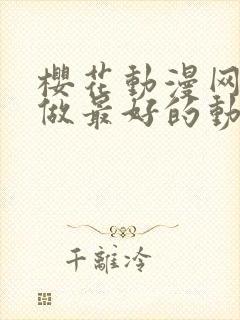 櫻花動漫网
做最好的動
千離冷